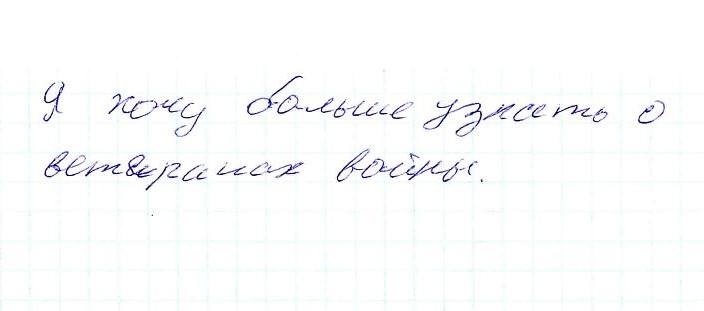 Я хочу больше узнать о
ветеранах войны.